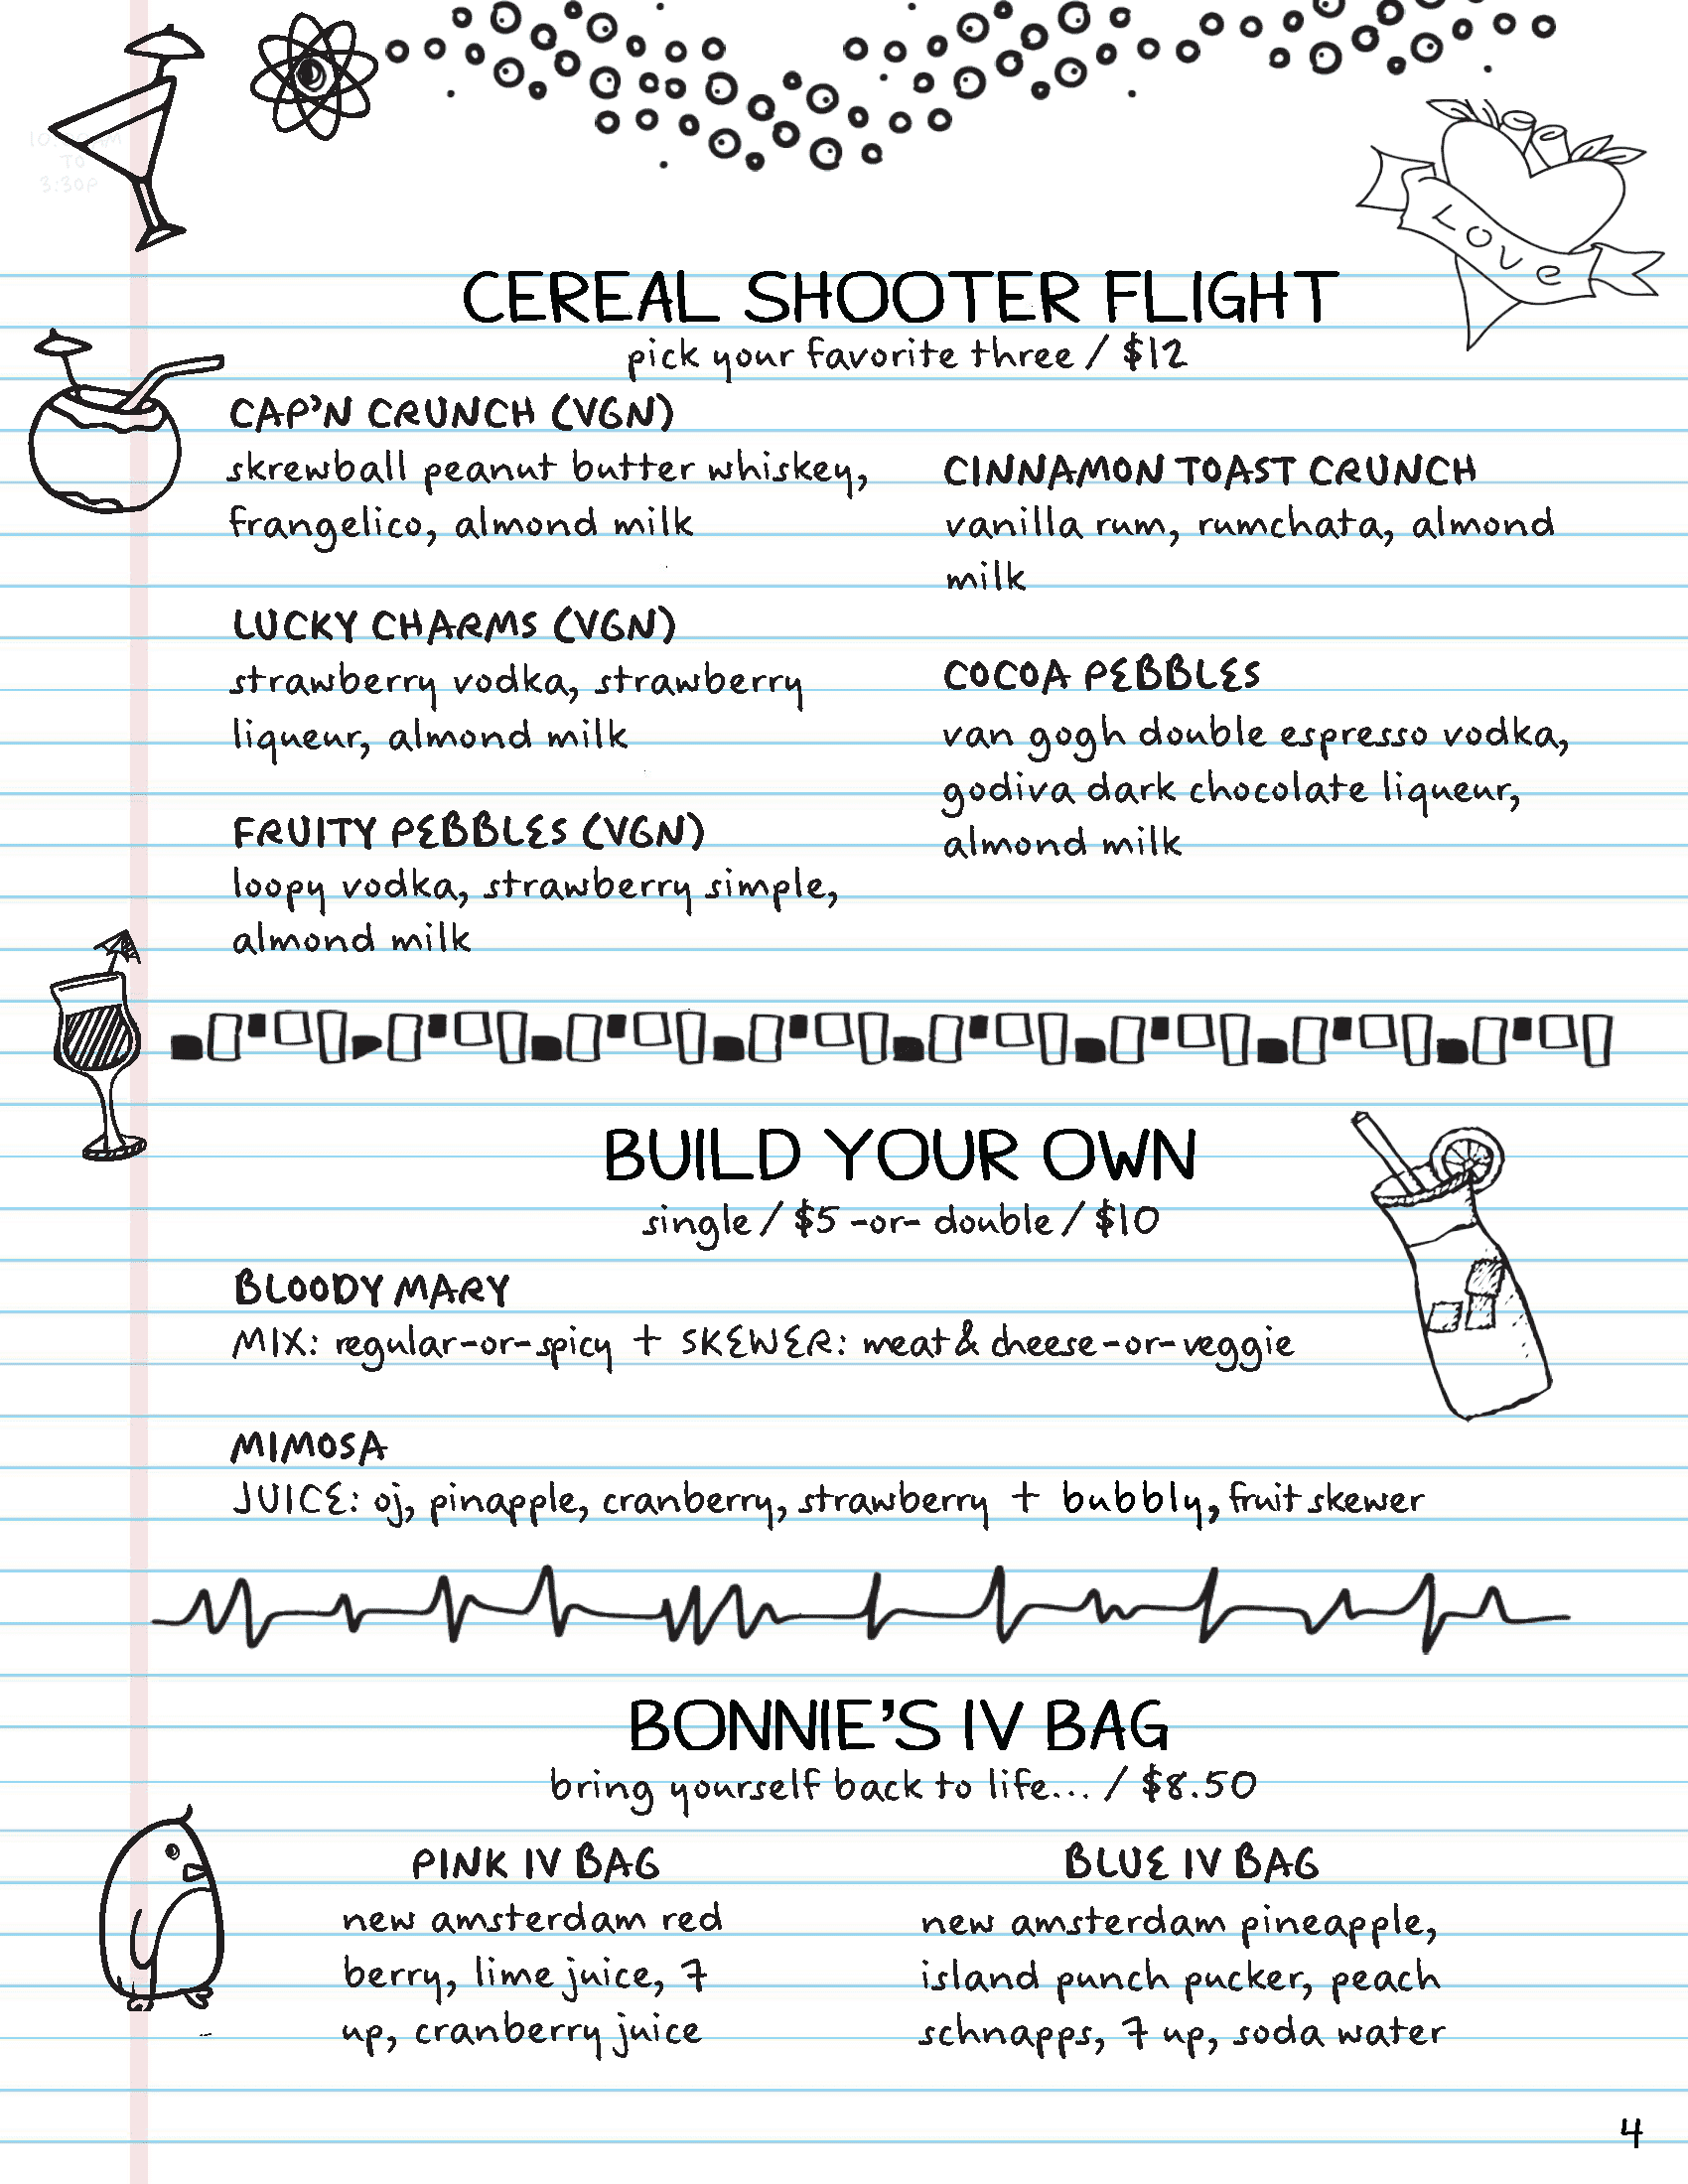 LOVE
CEREAL SHOOTER FLIGHT
pick your favorite three / $12
CAP'N CRUNCH (VGN)
skrewball peanut butter whiskey,
frangelico, almond milk
LUCKY CHARMS (VGN)
strawberry vodka, strawberry
liqueur, almond milk
FRUITY PEBBLES (VGN)
loopy vodka, strawberry simple,
almond milk
CINNAMON TOAST CRUNCH
vanilla rum, rumchata, almond
milk
COCOA PEBBLES
van gogh double espresso vodka,
godiva dark chocolate liqueur,
almond milk
BUILD YOUR OWN
single / $5 -or- double / $10
BLOODY MARY
MIX: regular-or-spicy + SKEWER: meat & cheese-or-veggie
MIMOSA
JUICE: oj, pinapple, cranberry, strawberry + bubbly, fruit skewer
BONNIE'S IV BAG
bring yourself back to life... / $8.50
PINK IV BAG
new amsterdam red
berry, lime juice, 7
up, cranberry juice
BLUE IV BAG
new amsterdam pineapple,
island punch pucker, peach
schnapps, 7 up, soda water
4
TO
3:30P